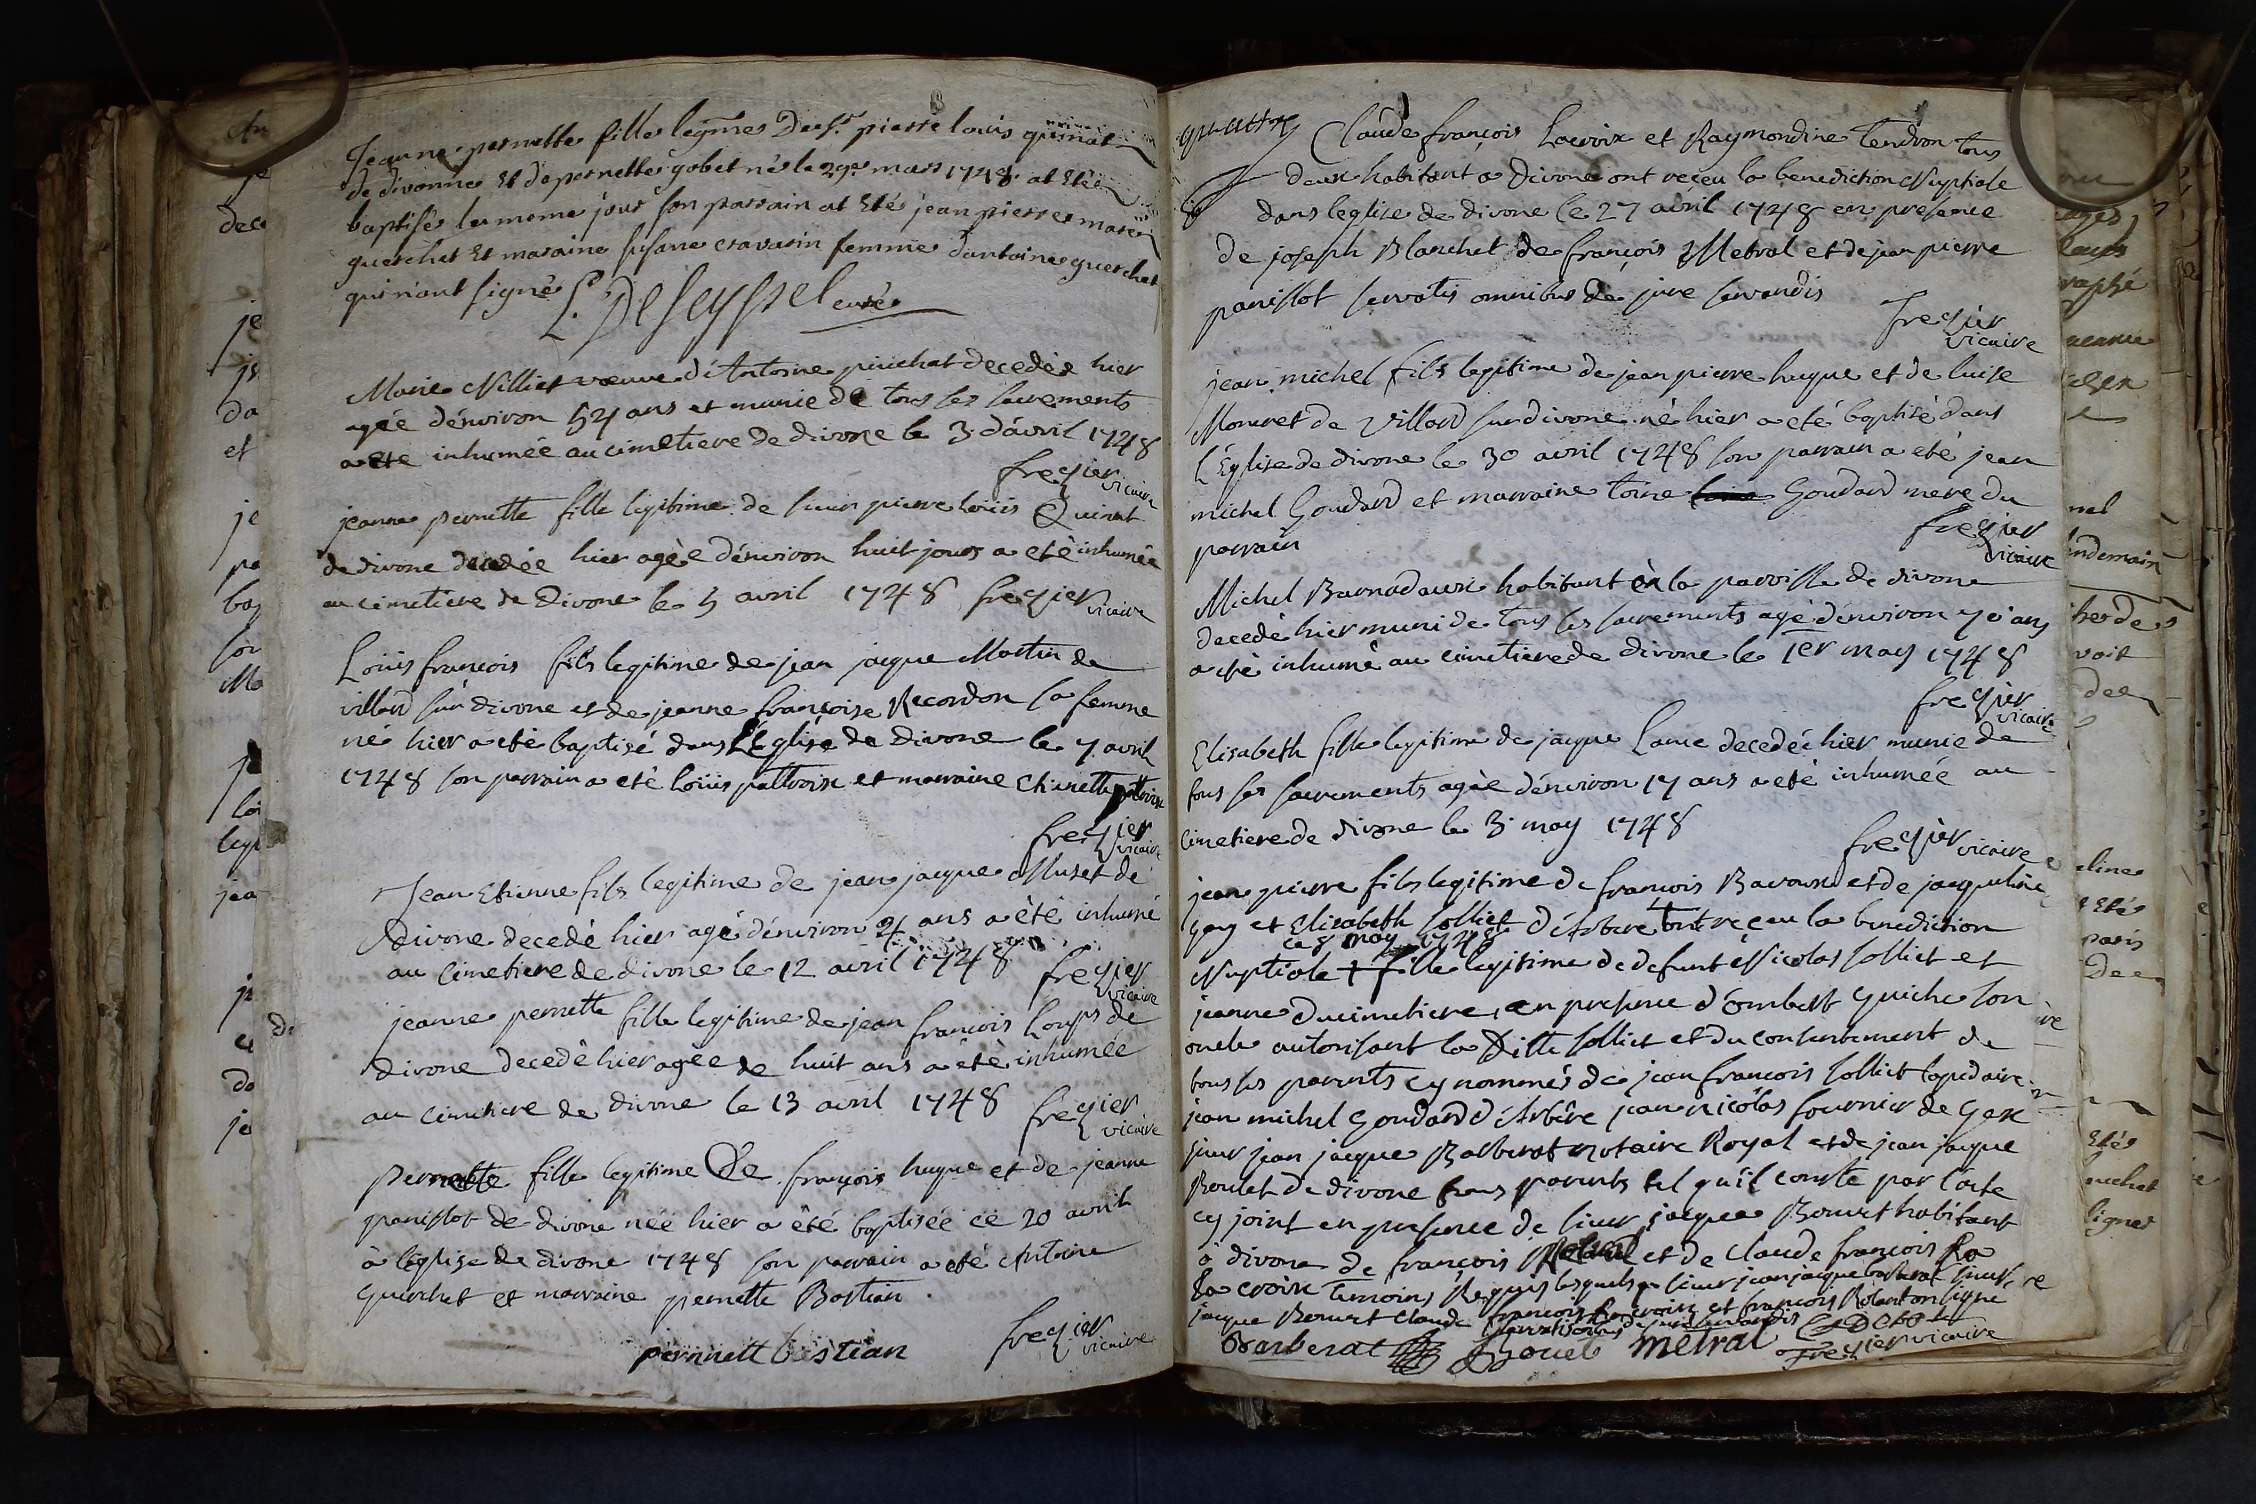 Jeanne pernette fille legmes Du Sr. pierre louis quinat
de divonne Et de pernette gobet né le 29e mars 1748 at Eté
baptisé le meme jour son parrain at Eté jean pierre marc
guerchet Et maraine susane cravasin femme d'antoine guerchet
qui n'ont signé
L. Deseyssel curé
Marie Nilliet veuve d'Antoine puichat decedée hier
agée d'environ 54 ans et munie de tous les sacrements
a ete inhumée au cimetiere de divone le 3 d'avril 1748
frezier vicaire
jeanne pernette fille legitime de sieur pierre loüis Quinat
de divone decedée hier agée d'environ huit jours a eté inhumée
au cimetiere de Divone le 5 avril 1748 frezier vicaire
Loüis francois fils legitime de jean jacque Martin de
villard sur divone et de jeanne françoise Recordon sa femme
né hier a eté baptisé dans L'Eglise de Divone le 7 avril
1748 son parrain a eté loüis pattroix et marraine
frezier vicaire
Jean Etienne fils legitime de jean jacque Muset de
divone decedé hier agé d'environ 4 ans a été inhumé
au cimetiere de divone le 12 avril 1748
frezier vicaire
jeanne pernette fille legitime de jean francois Loups de
divone decedé hier agée de huit ans a été inhumée
au cimetiere de divone le 13 avril 1748 frezier
vicaire
pernette fille legitime De françois hugue et de jeanne
panissot de divone née hier a été baptisée ce 20 avril
à l'eglise de divone 1748 son parrain a eté Antoine
Guerchet et marraine pernette Bastian.
frezier vicaire
pernnett bastian
quattre
Claude françois Lacroix et Raymondine Tendron tous
deux habitant a Divone ont reçeu la benediction Nuptiale
dans l'eglise de divone le 27 avril 1748 en presence
de joseph Blanchet de françois Metral et de jean pierre
panissot servatis omnibus de jure servandis
frezier
vicaire
jean michel fils legitime de jean pierre hugue et de luise
Mouret de Villard sur divone né hier a eté baptisé dans
L'Eglise de divone le 30 avril 1748 son parrain a eté jean
michel Goudard et marraine toine Goudard mere du
parrain
frezier
vicaire
Michel Barnadaux habitant en la parroisse de divone
decedé hier muni de tous les sacrements agé d'environ 70 ans
a été inhumé au cimetiere de divone le 1er may 1748
frezier
vicaire
Elisabeth fille legitime de jacque Lance decedée hier munie de
tous les sacrements agée d'environ 17 ans a eté inhumée au
cimetiere de divone le 3 may 1748
frezier vicaire
jean pierre fils legitime de francois Bavoux et de jacqueline
Gay et Elisabeth solliet d'Arbere ont reçeu la benediction
ce 8 may 1748
Nuptiale + fille legitime de defunt Nicolas solliet et
jeanne Ducimetiere, en presence d'ombert Guiche son
oncle autorisant la Ditte solliet et du consentement de
tous les parents cy nommés de jean francois solliet lapidaire
jean michel Goudard d'Arbére jean nicolas fournier de Gex
sieur jean jacque Balberat notaire Royal et de jean jacque
Roulet de divone tous parents tel qu'il conste par l'acte
cy joint en presence de sieur jacque Bouvet habitant
à divone de françois Metral et de Claude françois La
La croix temoins Requis lesquels sieur jean jacque barberat sieur
jacque Bouvet Claude françois La croix et francois ont signe
servatis omnibus de jure servandis
Barberat Bouet metral
frezier vicaire